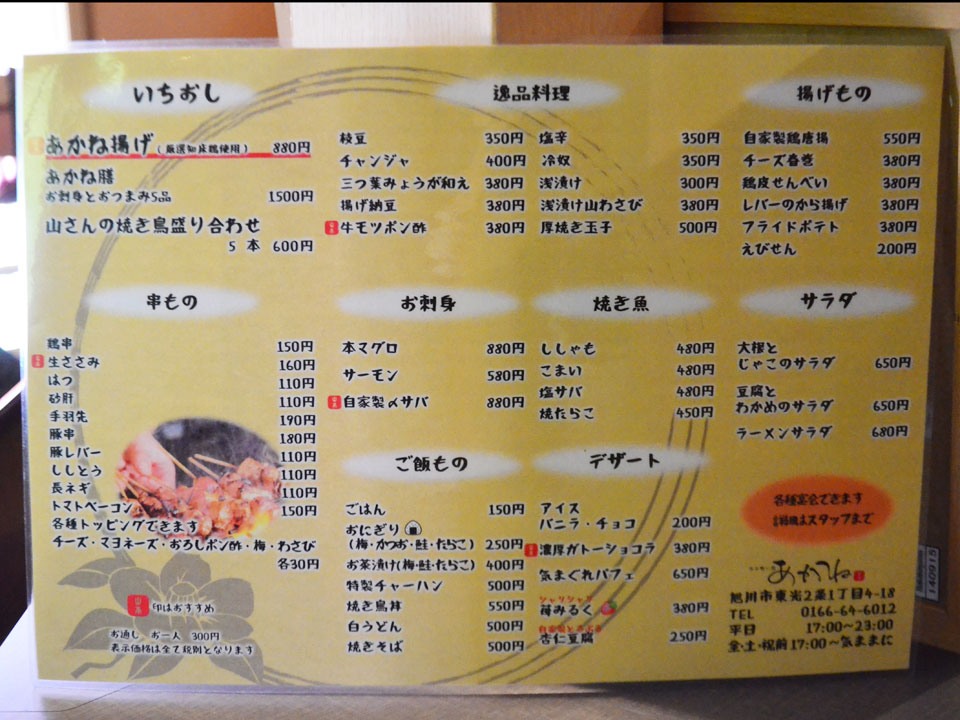 いちおし
あかね揚げ(厳選知床鶏使用) 880円
あかね膳
お刺身とおつまみ5品 1500円
山さんの焼き鳥盛り合わせ
5本 600円
逸品料理
枝豆 350円
チャンジャ 400円
三つ葉みょうが和え 380円
揚げ納豆 380円
牛モツポン酢 380円
塩辛 350円
冷奴 350円
浅漬け 300円
浅漬け山わさび 380円
厚焼き玉子 500円
揚げもの
自家製鶏唐揚 550円
チーズ春巻 380円
鶏皮せんべい 380円
レバーのから揚げ 380円
フライドポテト 380円
えびせん 200円
串もの
鶏串 150円
生ささみ 160円
はつ 110円
砂肝 110円
手羽先 190円
豚串 180円
豚レバー 110円
ししとう 110円
長ネギ 110円
トマトベーコン 150円
各種トッピングできます
チーズ・マヨネーズ・おろしポン酢・梅・わさび
各30円
印はおすすめ
お通し お一人 300円
表示価格は全て税別となります
お刺身
本マグロ 880円
サーモン 580円
自家製〆サバ 880円
焼き魚
ししゃも 480円
こまい 480円
塩サバ 480円
焼たらこ 450円
サラダ
大根と
じゃこのサラダ 650円
豆腐と
わかめのサラダ 650円
ラーメンサラダ 680円
ご飯もの
ごはん 150円
おにぎり
(梅・かつお・鮭・たらこ) 250円
お茶漬け(梅・鮭・たらこ) 400円
特製チャーハン 500円
焼き鳥丼 550円
白うどん 500円
焼きそば 500円
デザート
アイス
バニラ・チョコ 200円
濃厚ガトーショコラ 380円
気まぐれパフェ 650円
シャリシャリ
苺みるく 380円
杏仁豆腐 250円
各種宴会できます
詳細はスタッフまで
あかね
旭川市東光2条1丁目4-18
TEL 0166-64-6012
平日 17:00~23:00
金・土・祝前 17:00~気ままに
140915